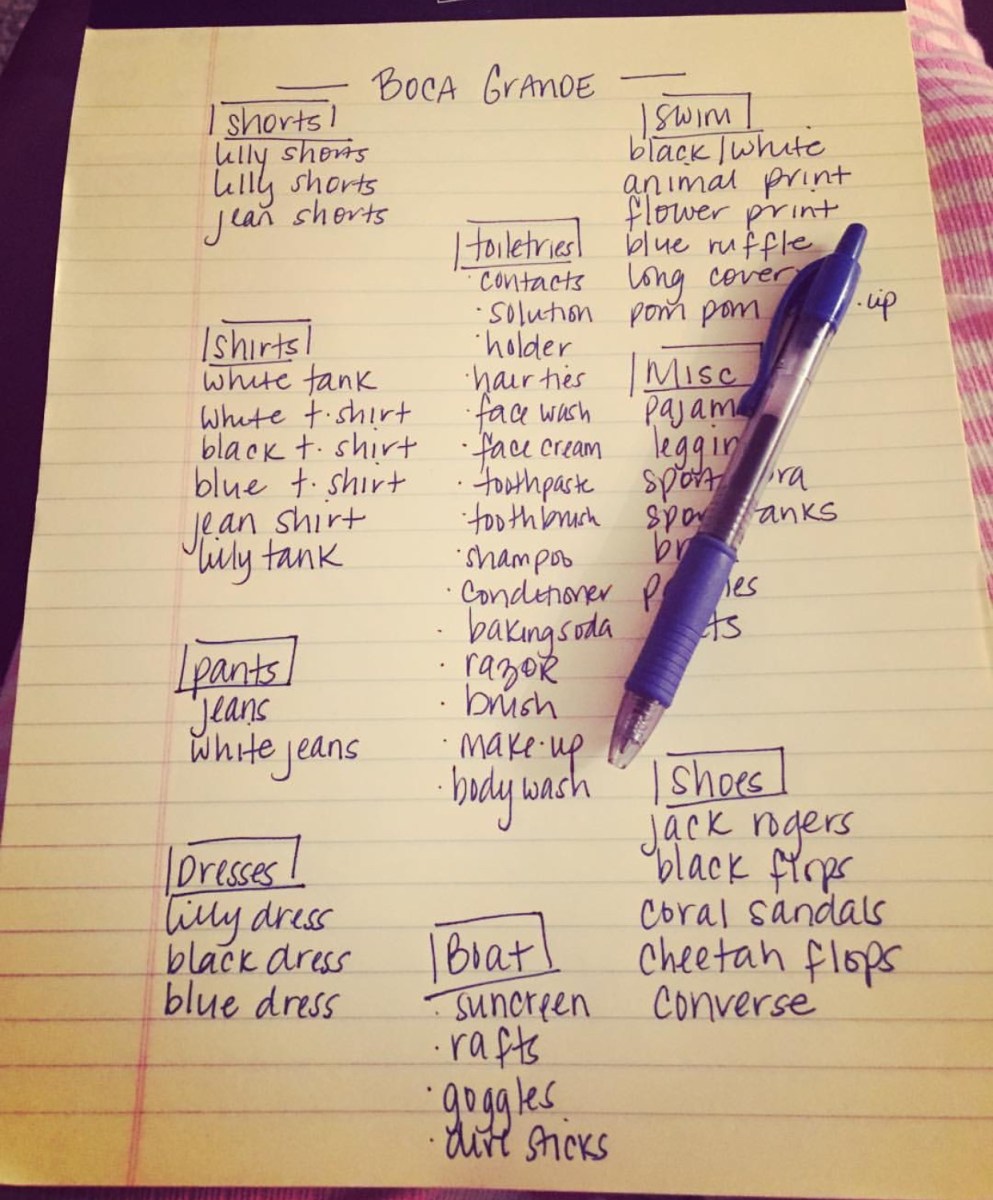 BOCA GRANDE
shorts
lilly shorts
lilly shorts
jean shorts
shirts
white tank
white t. shirt
black t. shirt
blue t. shirt
jean shirt
lilly tank
pants
jeans
white jeans
Dresses
lilly dress
black dress
blue dress
toiletries
· contacts
· solution
· holder
· hair ties
· face wash
· face cream
· toothpaste
· toothbrush
· shampoo
· conditioner
· baking soda
· razor
· brush
· make-up
· body wash
Boat
· suncreen
· rafts
· goggles
· dive sticks
swim
black/white
animal print
flower print
blue ruffle
long cover
pom pom
Misc
shoes
jack rogers
black flops
coral sandals
cheetah flops
converse